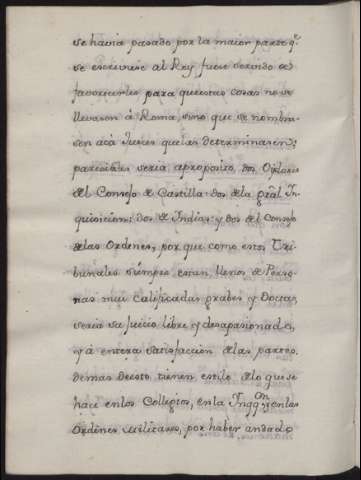 se havia pasado por la maior parte q.e
se escriviese al Rey fuese servido de
favorecerles para que estas cosas no se
llevasen à Roma, sino que se nombra-
sen acà Jueces que las determinasen;
pareceiales seria aproposito dos Oydores
del Consejo de Castilla: dos de la gràl In-
quisicion: dos de Indias: y dos del Consejo
de las Ordenes, por que como estos Tri-
bunales siempre estan llenos de Perso-
nas mui calificadas grabes y Doctas,
seria su juicio libre y desapasionado,
y à entera satisfaccion de las partes,
demas de esto tienen estilo de lo que se
hace en los Collegios, en la Inqq.on y en las
Ordenes militares, por haber andado